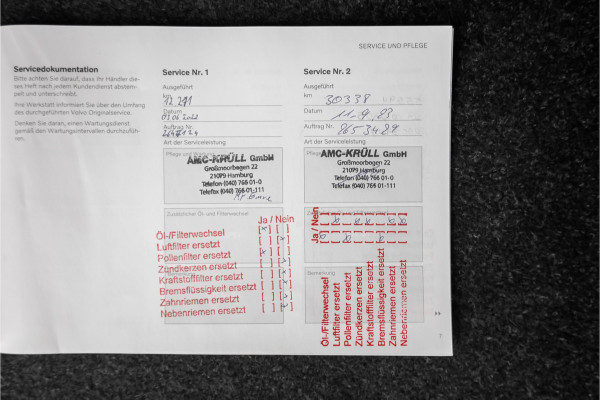 SERVICE UND PFLEGE
Servicedokumentation
Bitte achten Sie darauf, dass Ihr Händler die-
ses Heft nach jedem Kundendienst abstem-
pelt und unterschreibt.
Ihre Werkstatt informiert Sie über den Umfang
des durchgeführten Volvo Originalservice.
Denken Sie daran, einen Wartungsdienst
gemäß den Wartungsintervallen durchzufüh-
ren.
Service Nr. 1
Ausgeführt
km
12.241
Datum
03.06.2022
Auftrag Nr.
Art der Serviceleistung
Pflege und Wartung
AMC-KRÜLL GmbH
Großmoorbogen 22
21079 Hamburg
Telefon (040) 766 01-0
Telefax (040) 766 01-111
Zusätzlicher Öl- und Filterwechsel
Ja / Nein
Öl-/Filterwechsel [x] [ ]
Luftfilter ersetzt [ ] [x]
Pollenfilter ersetzt [x] [ ]
Zündkerzen ersetzt [ ] [x]
Kraftstofffilter ersetzt [ ] [x]
Bremsflüssigkeit ersetzt [ ] [x]
Zahnriemen ersetzt [ ] [x]
Nebenriemen ersetzt [ ] [x]
Service Nr. 2
Ausgeführt
km
30338
Datum
Auftrag Nr.
8653489
Art der Serviceleistung
AMC-KRÜLL GmbH
Großmoorbogen 22
21079 Hamburg
Telefon (040) 766 01-0
Telefax (040) 766 01-111
Ja / Nein
Bemerkung
Öl-/Filterwechsel
Luftfilter ersetzt
Pollenfilter ersetzt
Zündkerzen ersetzt
Kraftstofffilter ersetzt
Bremsflüssigkeit ersetzt
Zahnriemen ersetzt
Nebenriemen ersetzt
7